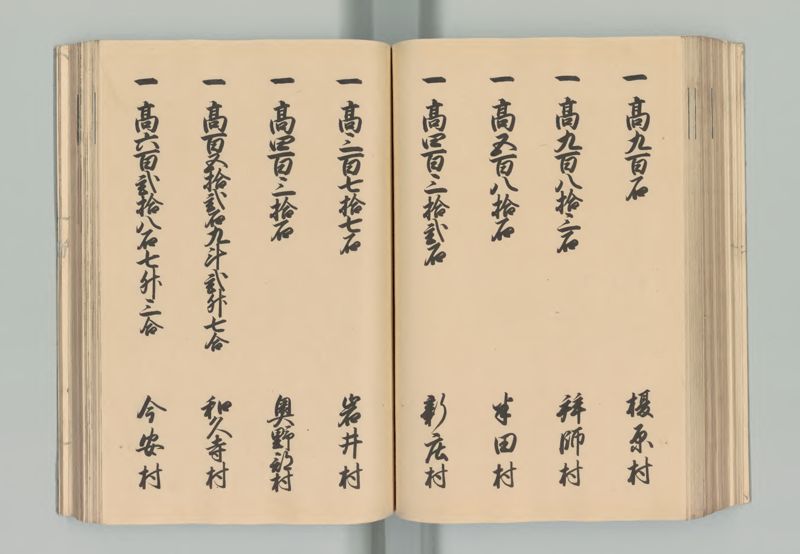 一 高九百石 榎原村
一 高九百八拾三石 拝師村
一 高五百八拾石 半田村
一 高四百三拾弐石 新庄村
一 高三百七拾七石 岩井村
一 高四百三拾石 奥野部村
一 高百五拾弐石九斗弐升七合 和久寺村
一 高六百弐拾八石七升三合 今安村